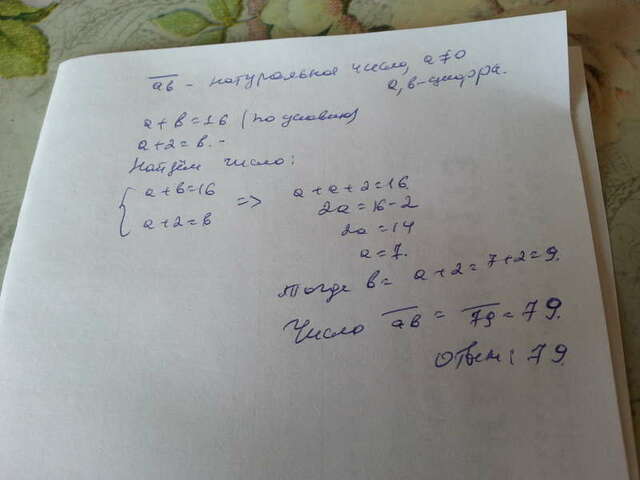 ab - натуральное число, a≠0
a, b-цифра.
a + b = 16 (по условию)
a+2=b. -
Найдём число:
{ a+b=16 => a+a+2=16.
a+2=b 2a=16-2
2a=14
a=7.
Тогда b= a+2=7+2=9.
Число ab = 79 = 79.
Ответ: 79.